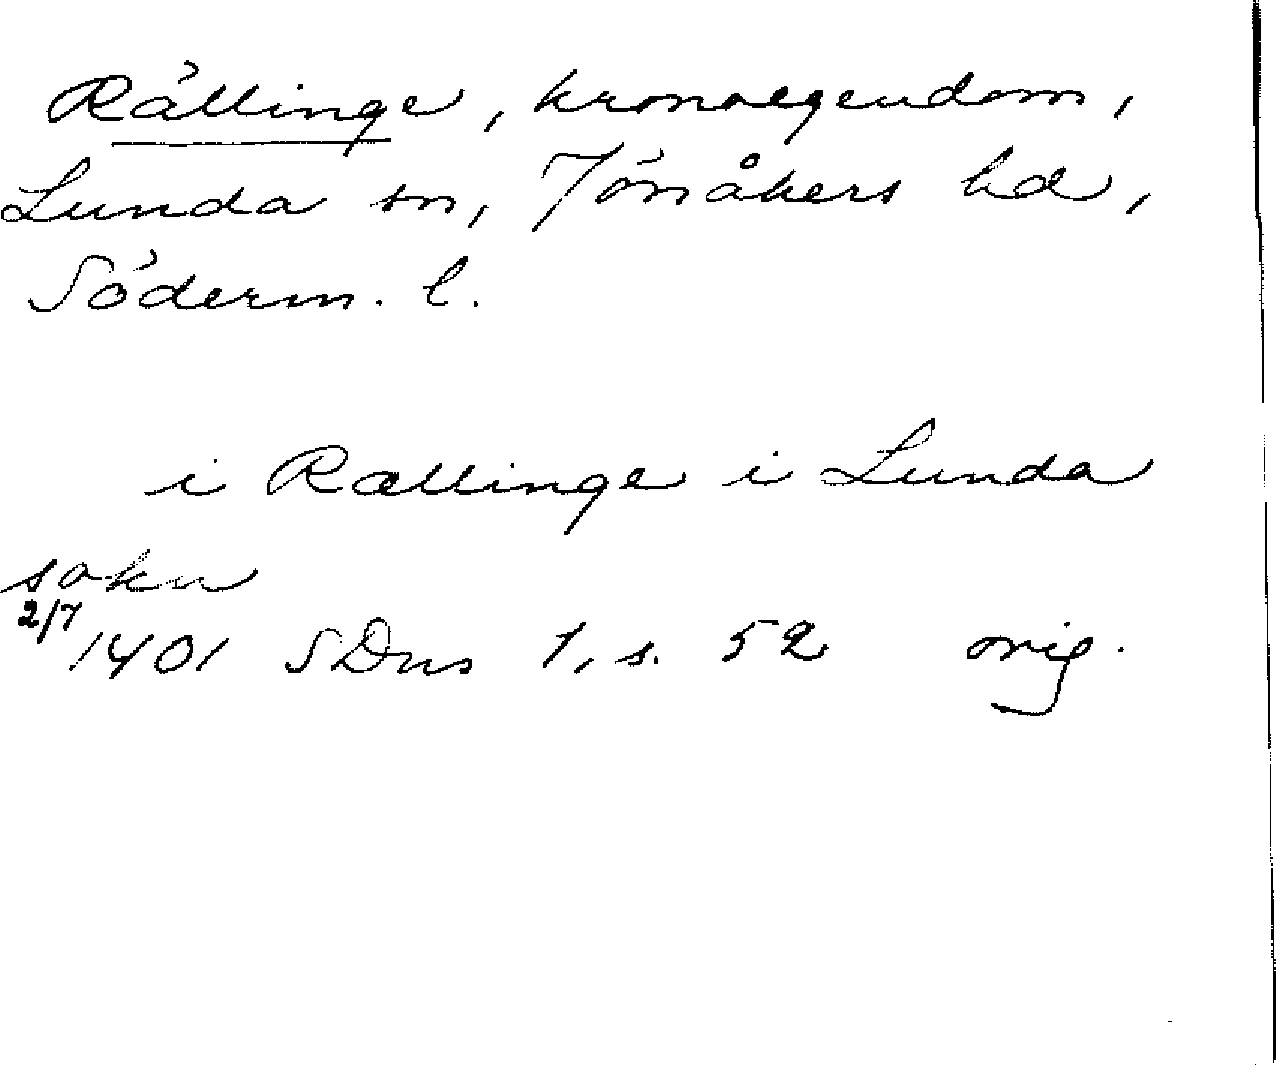 Rällinge, kronoegendom,
Lunda sn, Jönåkers hd,
Söderm. l.
i Rællinge i Lunda
sokn
2/7 1401 SDns 1, s. 52 orig.